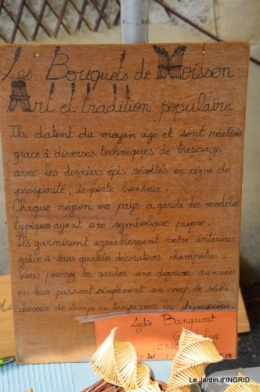 Les Bouquets de Moisson
Art et tradition populaire
Ils datent du moyen age et sont réalisés
grace à diverses techniques de tressage
avec les derniers epis récoltés en signe de
prosperité, de porte bonheur.
Chaque region ou pays a gardé des modèles
typiques ayant une symbolique propre.
Ils garniront agreablement votre interieur
grace à leur qualité decoratives champêtres
Vous pourrez les garder une dizaine d'années
en leur passant simplement un coup de sèche-
cheveux de temps en temps
Lydie Banquart
Le Jardin d'INGRID